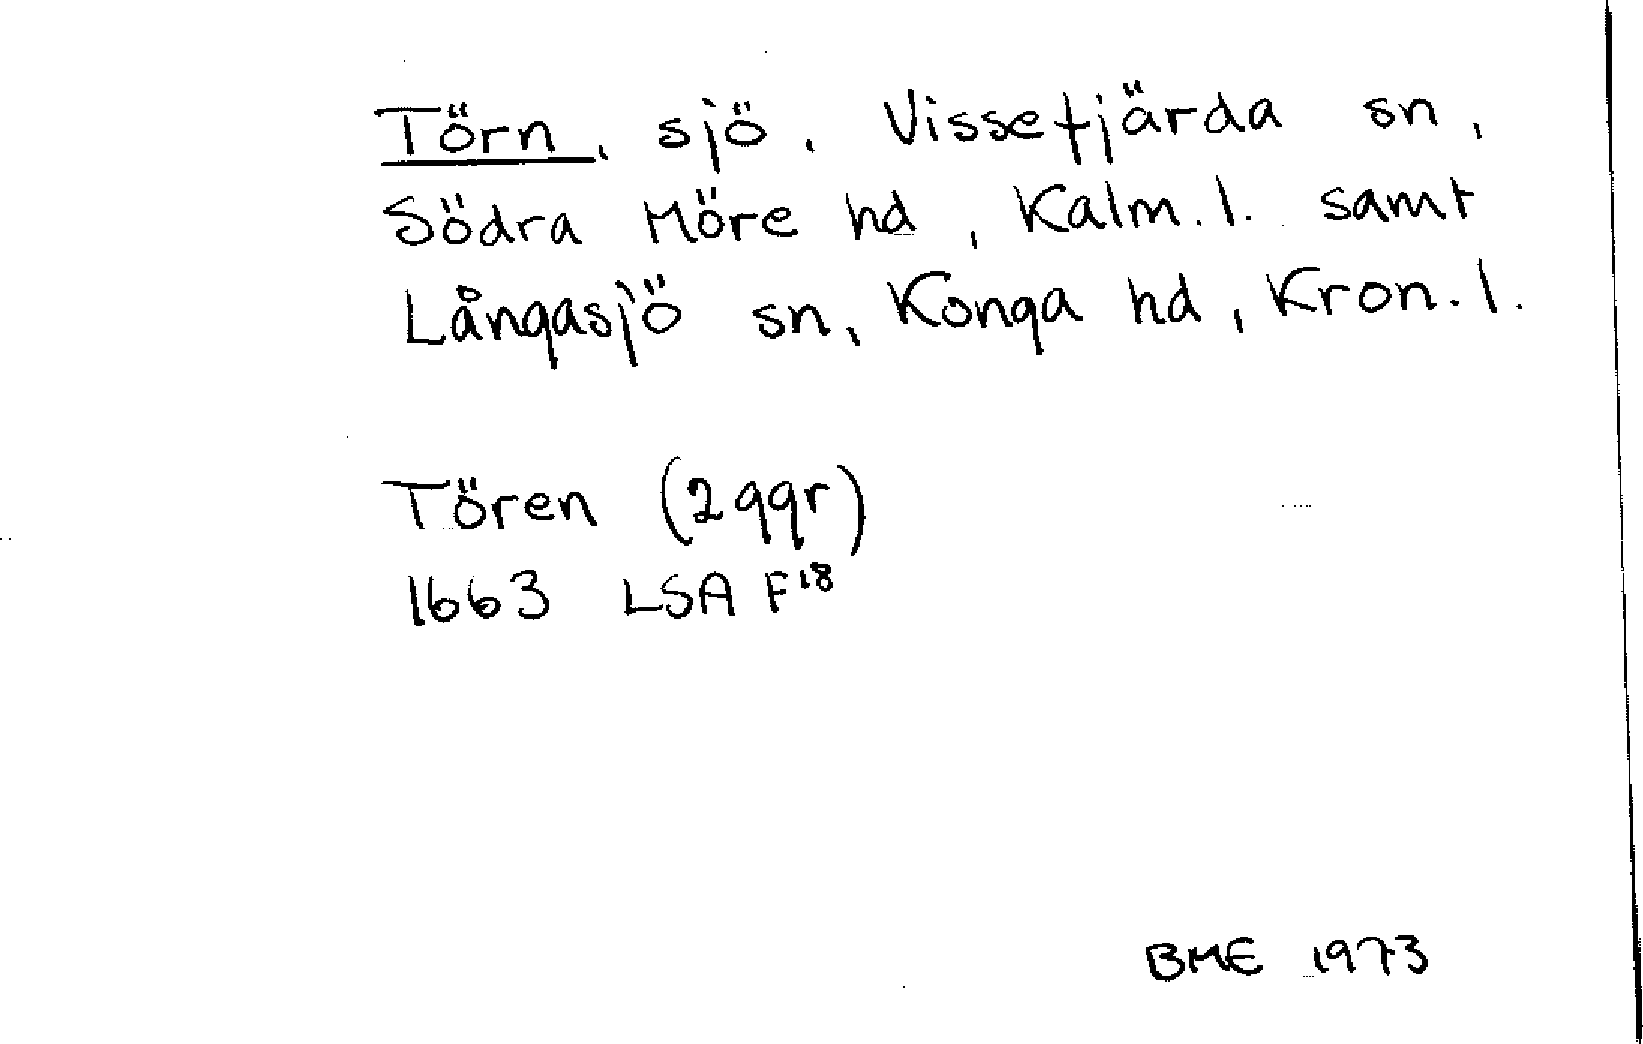 Törn, sjö, Vissefjärda sn,
Södra Möre hd, Kalm. l. samt
Långasjö sn, Konga hd, Kron. l.
Tören (2 ggr)
1663 LSA F18
BME 1973